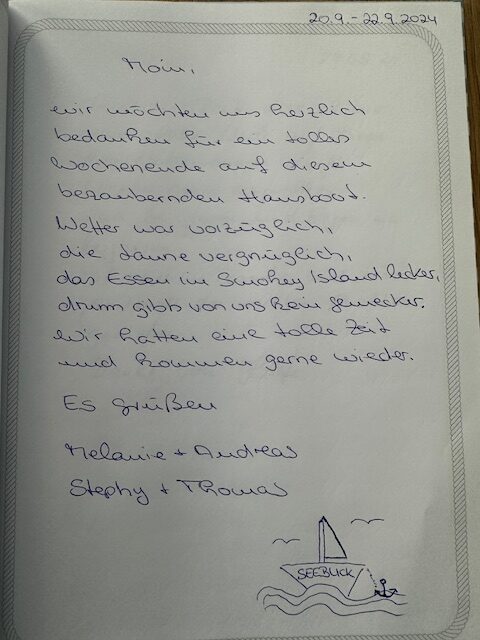 20.9. - 22.9.2024
Moin,
wir möchten uns herzlich
bedanken für ein tolles
Wochenende auf diesem
bezaubernden Hausboot.
Wetter war vorzüglich,
die Laune vergnüglich,
das Essen im Smokey Island lecker,
drum gibts von uns kein gemecker.
Wir hatten eine tolle Zeit
und kommen gerne wieder.
Es grüßen
Melanie + Andreas
Stephy + Thomas
SEEBLICK